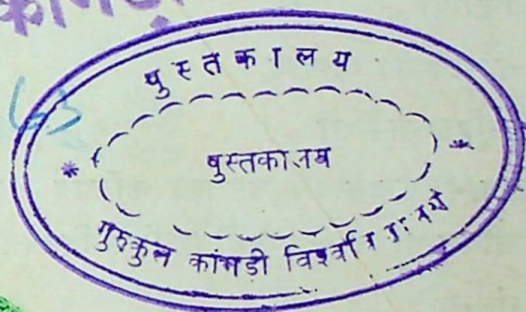 कांगड़ी
पुस्तकालय
पुस्तकालय
गुरुकुल कांगडी विश्वविद्यालय